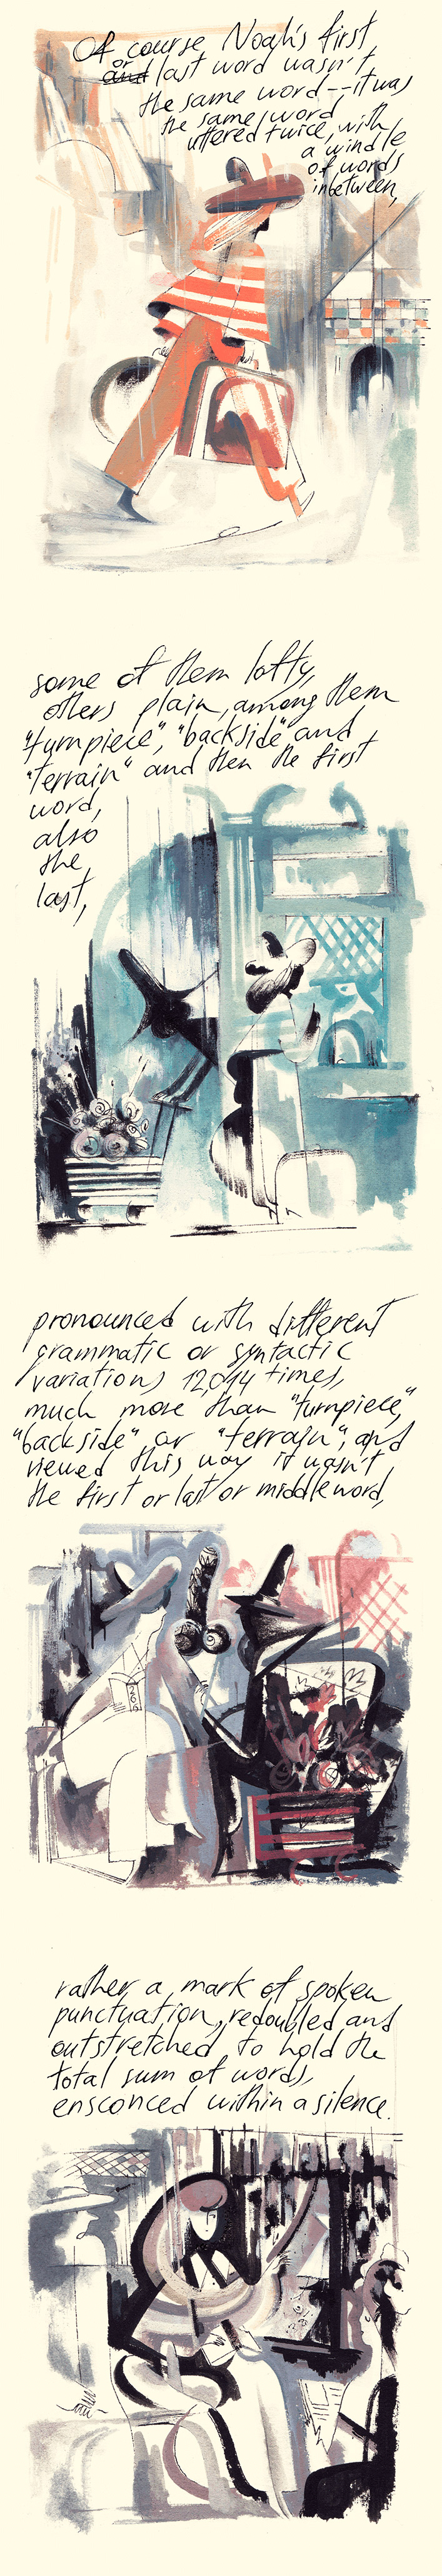 Of course Noah's first
or
and last word wasn't
the same word--it was
the same word
uttered twice, with
a windle
of words
inbetween,
some of them lofty,
others plain, among them
"turnpiece", "backside" and
"terrain" and then the first
word,
also
the,
last,
pronounced with different
grammatic or syntactic
variations 12,014 times,
much more than "turnpiece",
"backside" or "terrain", and
viewed this way it wasn't
the first or last or middle word,
rather a mark of spoken
punctuation, redoubled and
outstretched to hold the
total sum of words,
ensconced within a silence.